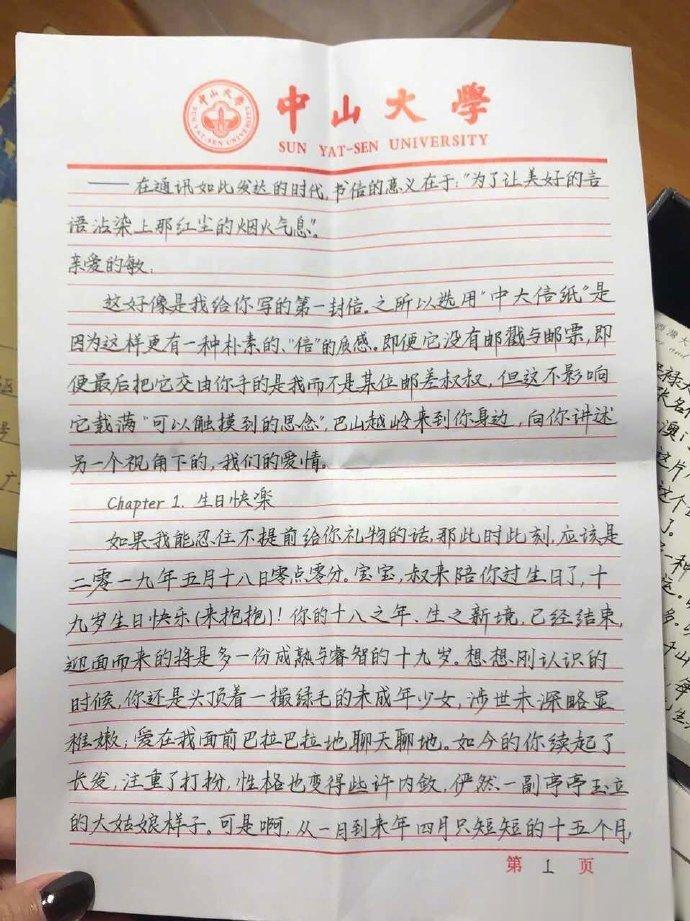 中山大學
SUN YAT-SEN UNIVERSITY
——在通讯如此发达的时代,书信的意义在于:"为了让美好的言
语沾染上那红尘的烟火气息"。
亲爱的敏:
这好像是我给你写的第一封信。之所以选用"中大信纸"是
因为这样更有一种朴素的、"信"的质感。即便它没有邮戳与邮票,即
便最后把它交由你手的是我而不是某位邮差叔叔,但这不影响
它载满"可以触摸到的思念",巴山越岭来到你身边,向你讲述
另一个视角下的,我们的爱情。
Chapter 1. 生日快樂
如果我能忍住不提前给你礼物的话,那此时此刻,应该是
二零一九年五月十八日零点零分。宝宝,叔来陪你过生日了,十
九岁生日快乐(来抱抱)!你的十八之年、生之新境,已经结束,
迎面而来的将是多一份成熟与睿智的十九岁。想想刚认识的
时候,你还是头顶着一撮绿毛的未成年少女,涉世未深略显
稚嫩,爱在我面前巴拉巴拉地聊天聊地。如今的你续起了
长发,注重了打扮,性格也变得些许内敛,俨然一副亭亭玉立
的大姑娘样子。可是啊,从一月到来年四月只短短的十五个月,
第 1 页